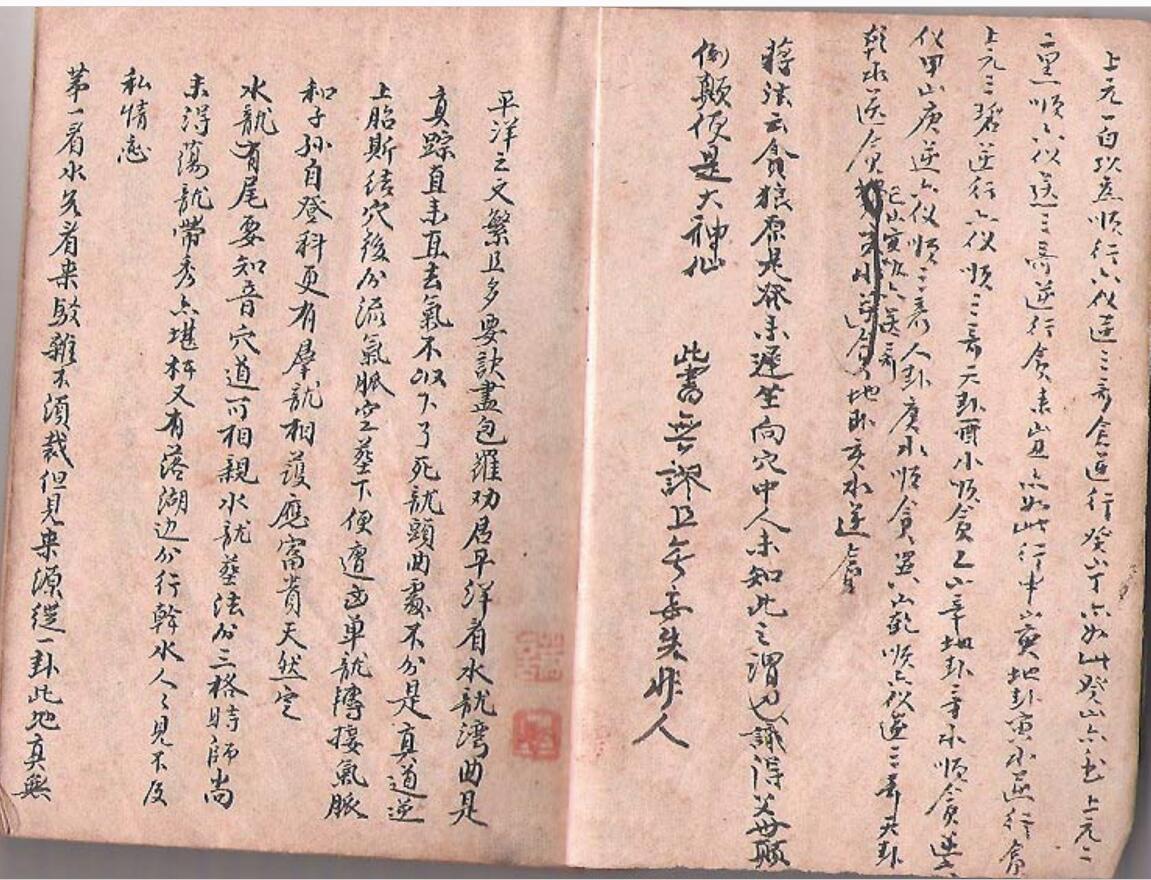 上元一白坎卦順行六儀逆三奇貪逆行癸山丁亦如此癸山六 上元二
二黑順六儀逆三奇逆行貪未山丑亦如此行中山寅地卦寅水逆行貪
上元三碧逆行六儀順三奇天卦酉水順貪乙山辛地卦辛水順貪逆
儀甲山庚逆六儀順三奇人卦庚水順貪 山乾順六儀逆三奇天卦
乾水逆貪 地卦亥水逆貪
巳山
蔣法云貪狼原是發來遲坐向穴中人未知此之謂也識得父母顛
倒顛便是大神仙
此書無謬且無妄失非人
平洋之文繁且多要訣盡包羅劝君平洋看水龍灣曲是
真踪直来直去氣不收下了死龍頭曲處不分是真道逆
上胎斯結穴後分流氣脈空塟下便遭凶單龍博接氣脈
和子孫自登科更有羣龍相護應富貴天然定
水龍有尾要知音穴道可相親水龍塟法分三格時師尚
未得蕩龍帶秀亦堪杯又有落湖边分行幹水人〻見不及
私情恋
第一看水先看来駁雜不須裁但見来源從一卦此地真無